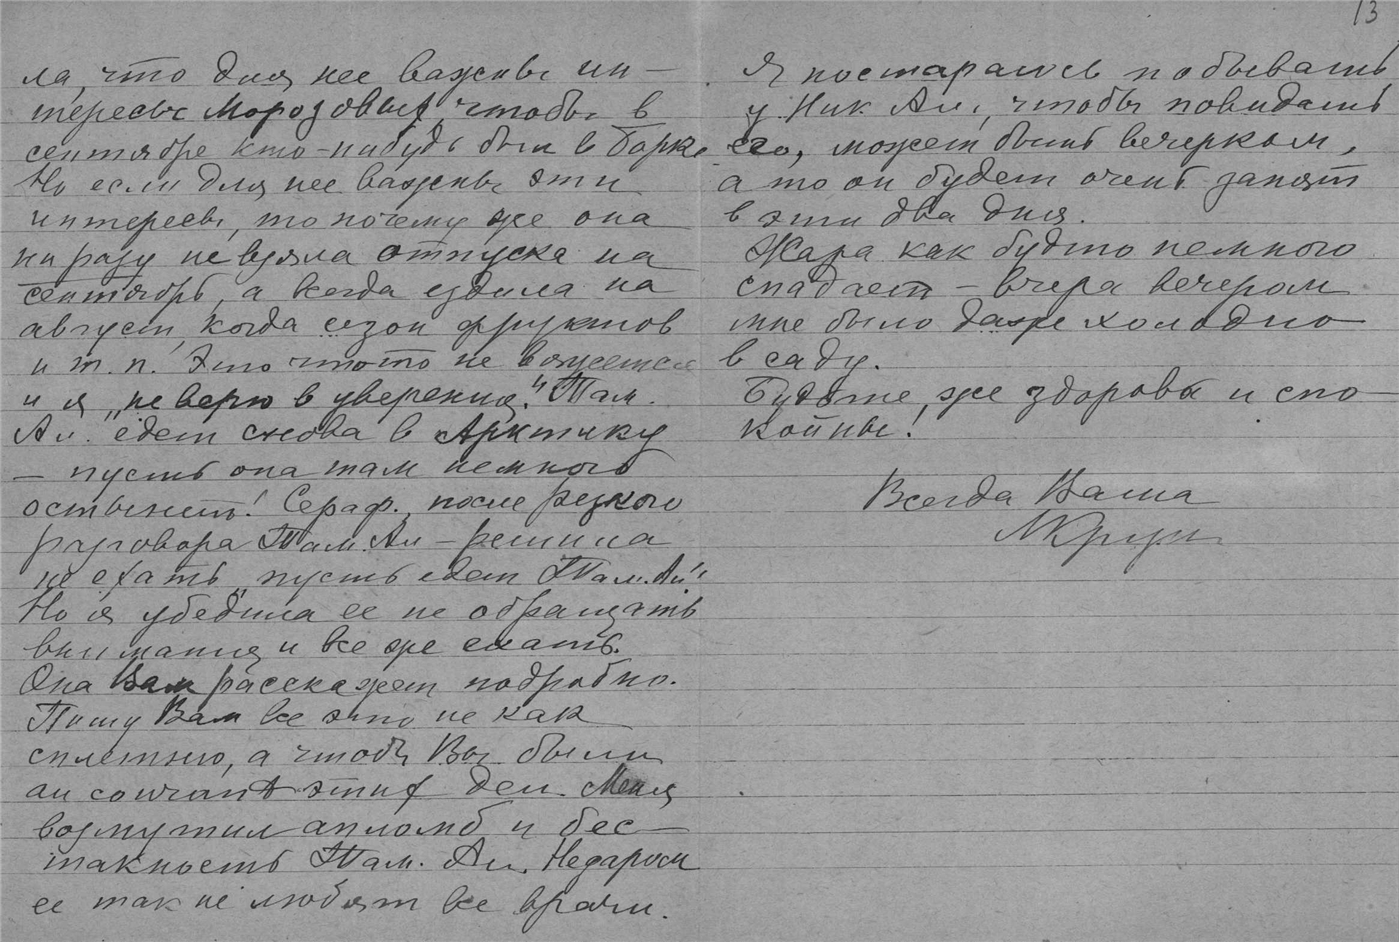 13
ла, что для нее важны ин-
тересы Морозовых, чтобы в
сентябре кто-нибудь был в Борке
Но если для нее важны эти
интересы, то почему же она
ни разу не взяла отпуска на
сентябрь, а всегда ездила на
август, когда сезон фруктов
и т. п.! Это что то не вяжется
и я „не верю в уверения." Там.
Ал. едет снова в Арктику
— пусть она там немного
остынет! Сераф., после резкого
разговора Там. Ал — решила
не ехать „пусть едет Там. Ал"
Но я убедила ее не обращать
внимания и все же ехать.
Она Вам расскажет подробно.
Пишу Вам все это не как
сплетню, а чтобы Вы были
au courant этих дел. Меня
возмутил апломб и бес-
тактность Там. Ал. Недаром
ее так не любят все врачи.
Я постараюсь побывать
у Ник Ал., чтобы повидать
его, может быть вечерком,
а то он будет очень занят
в эти два дня.
Жара как будто немного
спадает — вчера вечером
мне было даже холодно
в саду.
Будьте же здоровы и спо-
койны!
Всегда Ваша